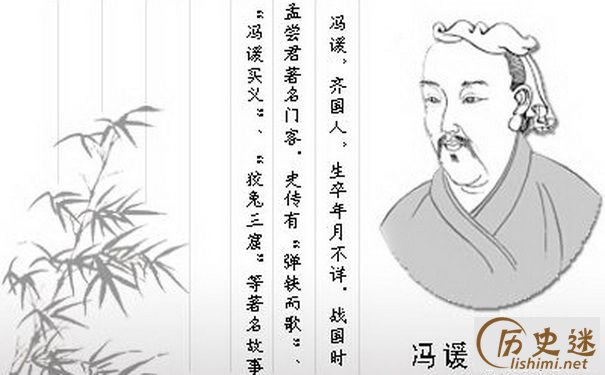 冯谖，齐国人，生卒年月不详。战国时
孟尝君著名门客。史传有“弹铁而歌”、
“冯谖买义”、“狡兔三窟”等著名故事
冯谖
历史迷
lishimi.net